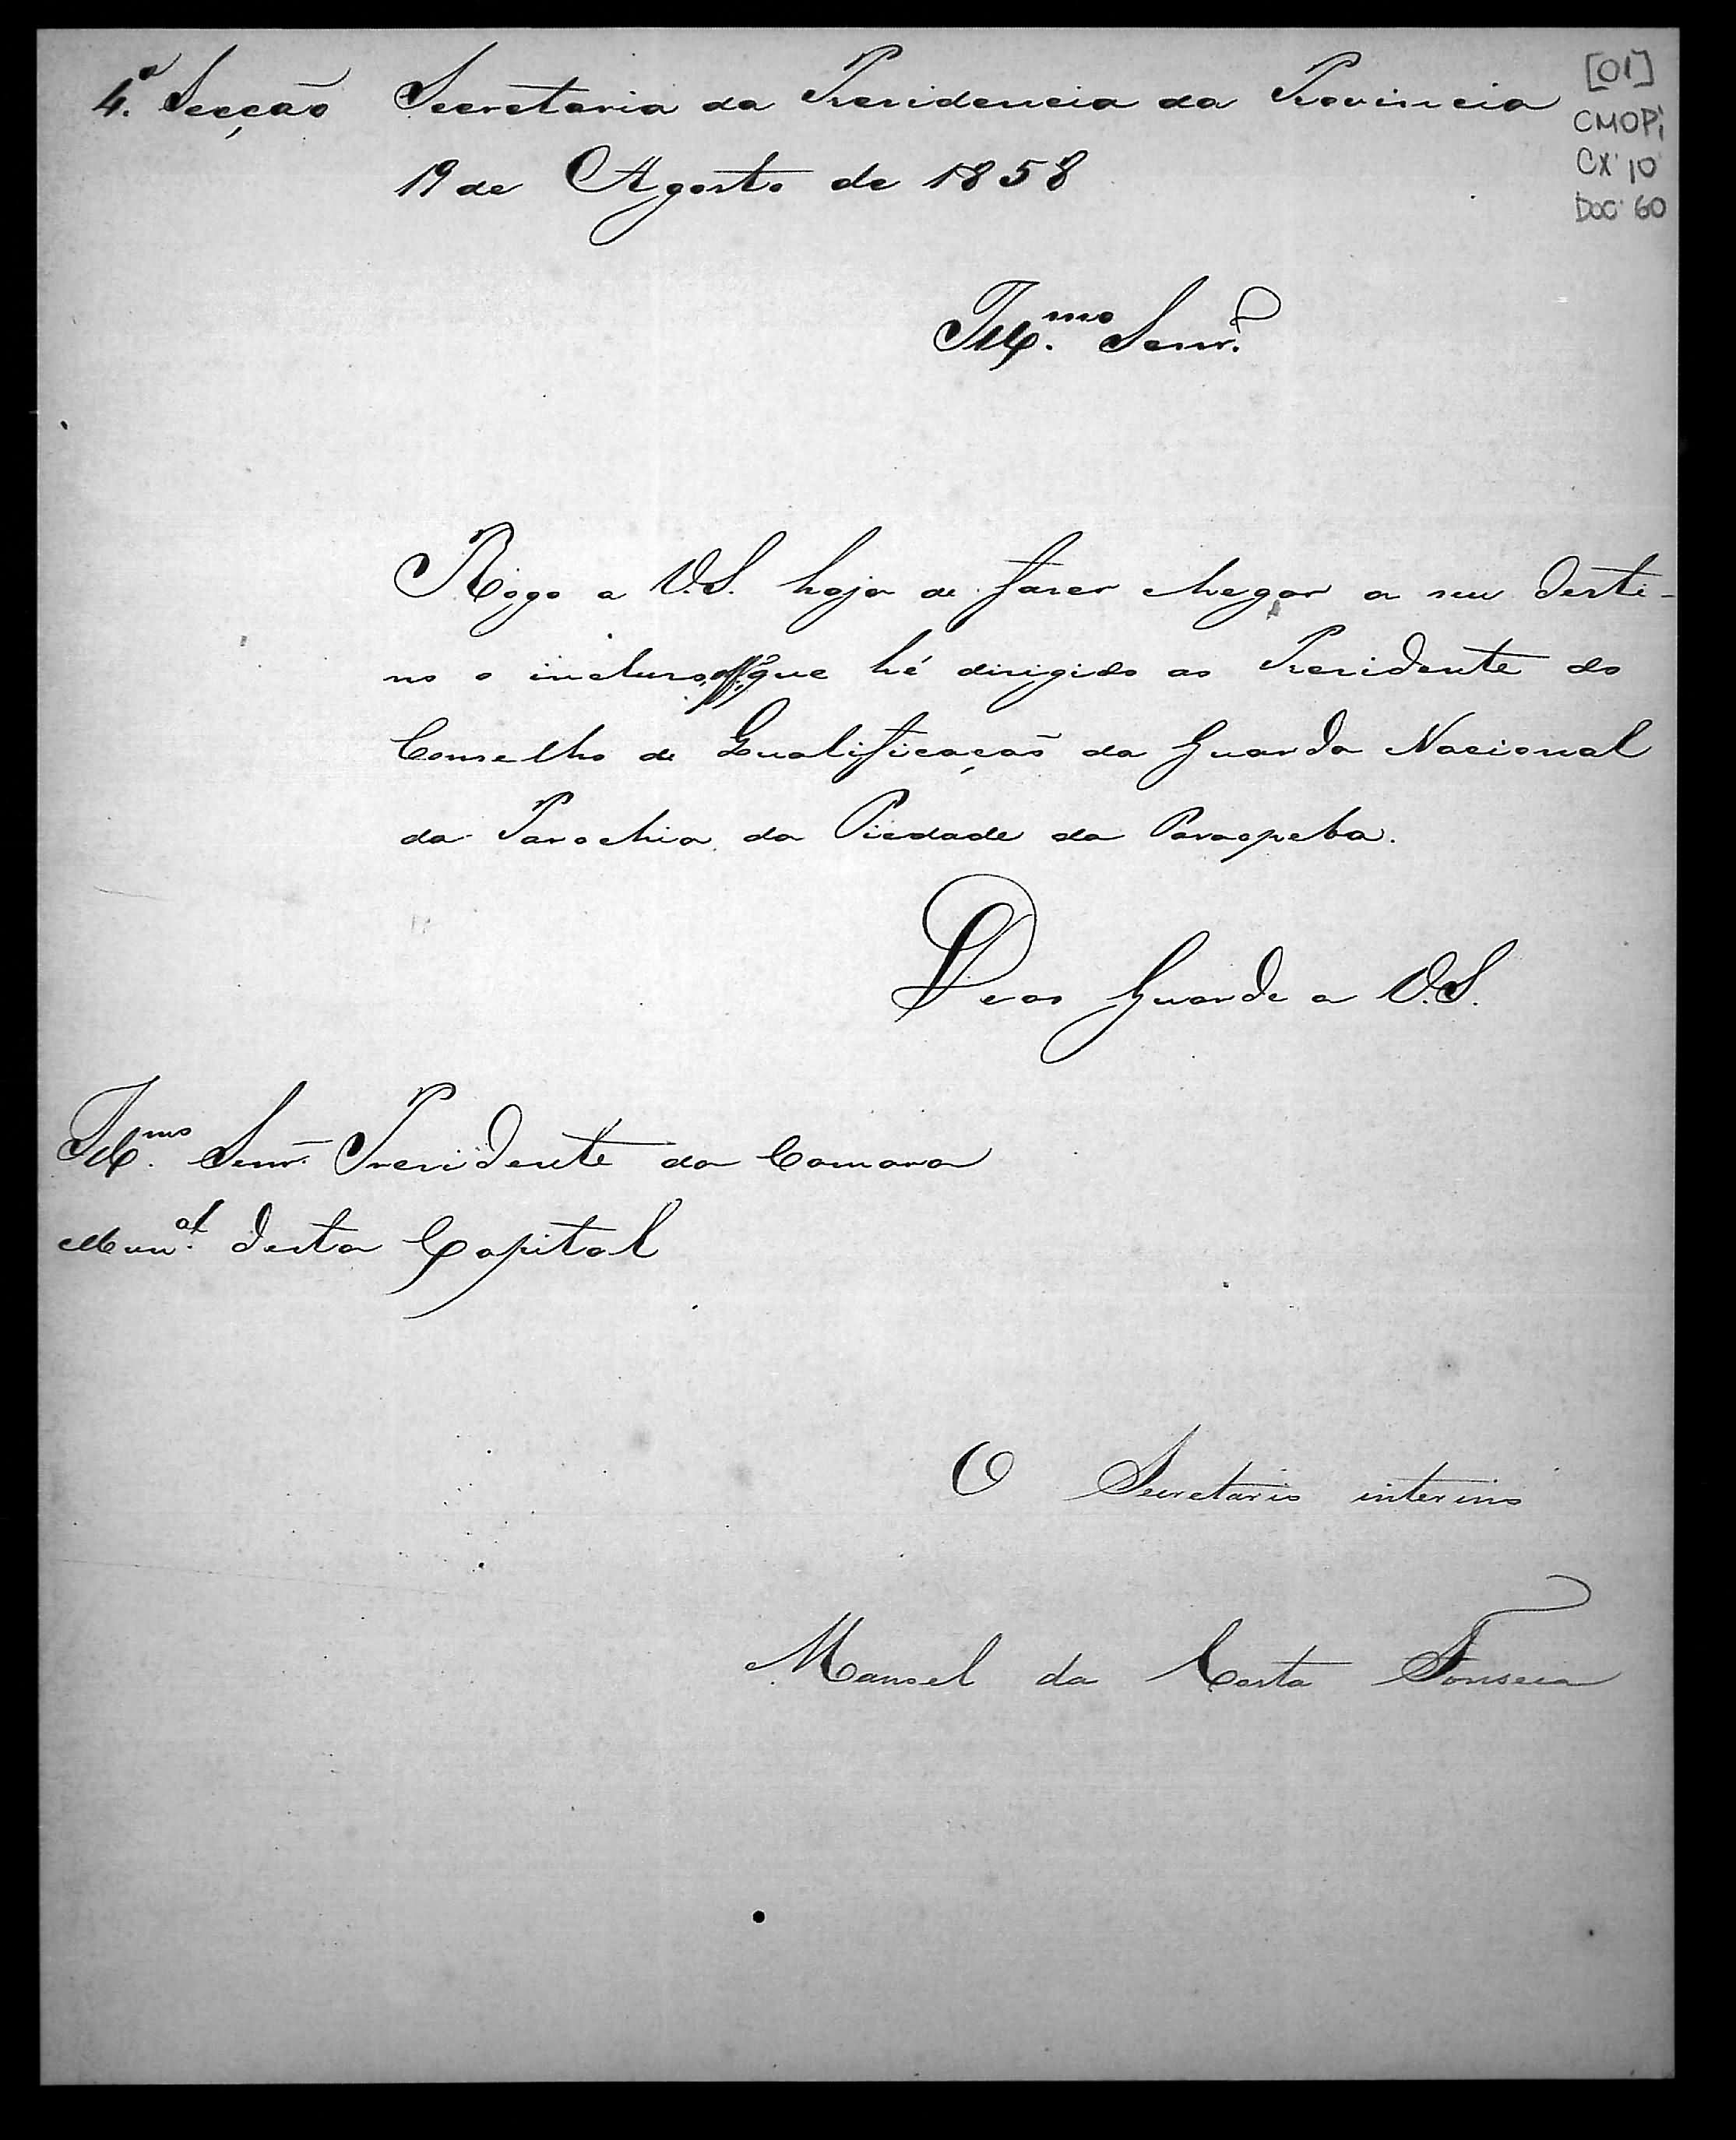 4.ª Secção Secretaria da Presidencia da Provincia
19 de Agosto de 1858
[01]
CMOPi
CX 10
DOC 60
Ill.mo Senr.
Rogo a V.S. haja de fazer chegar a seu desti-
no o incluso off.º que hé dirigido ao Presidente do
Conselho de Qualificação da Guarda Nacional
da Parochia da Piedade da Paraopeba.
Deos Guarde a V.S.
Ill.mo Senr. Presidente da Camara
Mun.al desta Capital
O Secretario interino
Manoel da Costa Fonseca